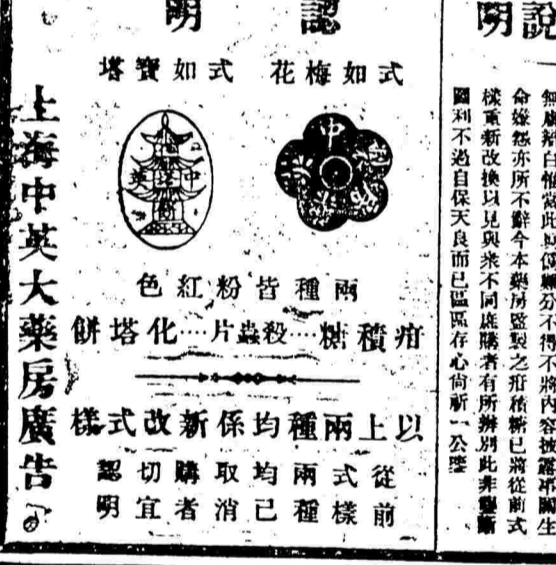 說明
無庸辯白惟當此真僞雜列不得不將內容披露關生
命嫌怨亦所不辭今本藥房監製之疳積糖已將從前式
樣重新改換以見與衆不同庶購者有所辨別此非壟斷
圖利不過自保天良而已區區存心尚祈公鑒
認明
式如梅花
式如寶塔
中
中英
化塔餅
兩種皆粉紅色
疳積糖…殺蟲片…化塔餅
以上兩種均係新改式樣
從前
式樣
兩種
均已
取消
購者
切宜
認明
上海中英大藥房廣告